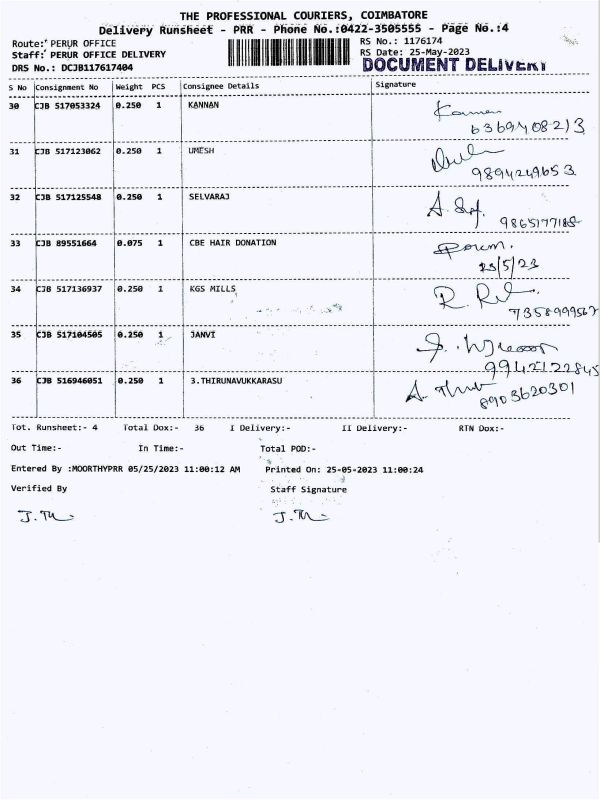 THE PROFESSIONAL COURIERS, COIMBATORE
Delivery Runsheet - PRR - Phone No.:0422-3505555 - Page No.:4
Route: PERUR OFFICE
RS No.: 1176174
Staff: PERUR OFFICE DELIVERY
RS Date: 25-May-2023
DRS No.: DCJB117617404
DOCUMENT DELIVERY
S No Consignment No Weight PCS Consignee Details Signature
30 CJB 517053324 0.250 1 KANNAN Kannan
6369408213
31 CJB 517123062 0.250 1 UMESH
9894249653
32 CJB 517125548 0.250 1 SELVARAJ
9865177188
33 CJB 89551664 0.075 1 CBE HAIR DONATION
25/5/23
34 CJB 517136937 0.250 1 KGS MILLS
7358999567
35 CJB 517104505 0.250 1 JANVI
9942122845
36 CJB 516946051 0.250 1 3.THIRUNAVUKKARASU
8903620301
Tot. Runsheet:- 4 Total Dox:- 36 I Delivery:- II Delivery:- RTN Dox:-
Out Time:- In Time:- Total POD:-
Entered By :MOORTHYPRR 05/25/2023 11:00:12 AM Printed On: 25-05-2023 11:00:24
Verified By Staff Signature